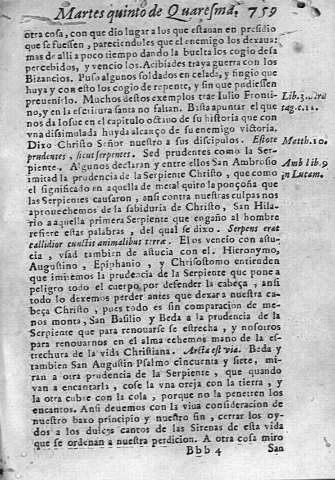 Martes quinto de Quaresma. 759
otra cosa, con que dio lugar a los que estauan en presidio
que se fuessen, pareciendoles que el enemigo los dexaua:
mas de alli a poco tiempo dando la buelta los cogio desa
percebidos, y vencio los. Acibiades traya guerra con los
Bizancios. Puso algunos soldados en celada, y fingio que
huya y con esto los cogio de repente, y sin que pudiessen
preuenirlo. Muchos destos exemplos trae Iulio Fronti-
no, y en la escritura santa no faltan. Bista apuntar el que
nos da Iosue en el capitulo octauo de su historia que con
vna dissimulada huyda alcanço de su enemigo victoria.
Dixo Christo Señor nuestro a sus dicipulos. Estote
prudentes, sicut serpentes. Sed prudentes como la Ser-
piente. Algunos declaran, y entre ellos San Ambrosio
imitad la prudencia de la Serpiente Christo, que como
el significado en aquella de metal quito la ponçoña que
las Serpientes causaron, ansi contra nuestras culpas nos
aprouechemos de la sabiduria de Christo, San Hila-
rio a aquella primera Serpiente que engaño al hombre
refiere estas palabras, del qual se dixo. Serpens erat
callidior cunctis animalibus terræ. El os vencio con astu-
cia, vsad tambien de astucia con el. Hieronymo,
Augustino, Epiphanio, y Chrisostomo entienden
que imitemos la prudencia de la Serpiente que pone a
peligro todo el cuerpo por defender la cabeça, ansi
todo lo dexemos perder antes que dexar a nuestra ca-
beça Christo, pues todo es sin comparacion de me-
nos monta, San Basilio y Beda a la prudencia de la
Serpiente que para renouarse se estrecha, y nosotros
para renouarnos en el alma echemos mano de la es-
trechura de la vida Christiana. Arcta est via. Beda y
tambien San Augustin Psalmo cincuenta y siete, mi-
ran a otra prudencia de la Serpiente, que quando
van a encantarla, cose la vna oreja con la tierra, y
la otra cubre con la cola, porque no la penetren los
encantos. Ansi deuemos con la viua consideracion de
nuestro baxo principio y nuestro fin, cerrar los oy-
dos a los dulces cantos de las Sirenas de esta vida
que se ordenan a nuestra perdicion. A otra cosa miro
Bbb 4 San
Lib. 3.
tag. c. 11.
Matth. 10.
Amb lib. 9
in Lucam.